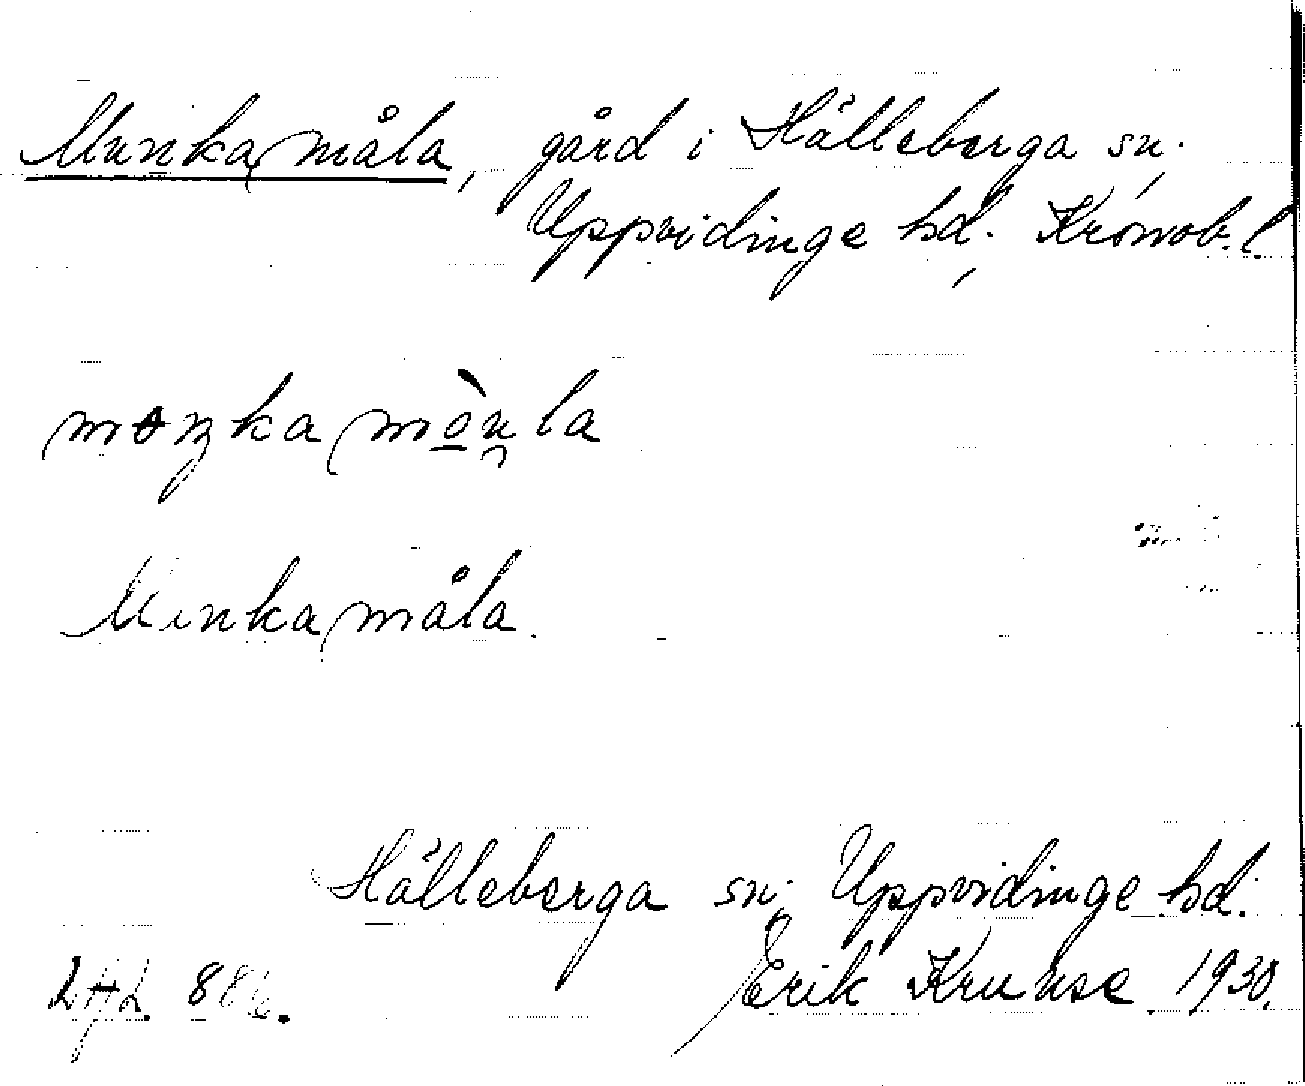 Munkamåla, gård i Hälleberga sn.
Uppvidinge hd. Kronob. l.
Munkamåla
Hälleberga sn. Uppvidinge hd.
Erik Kruuse 1930.